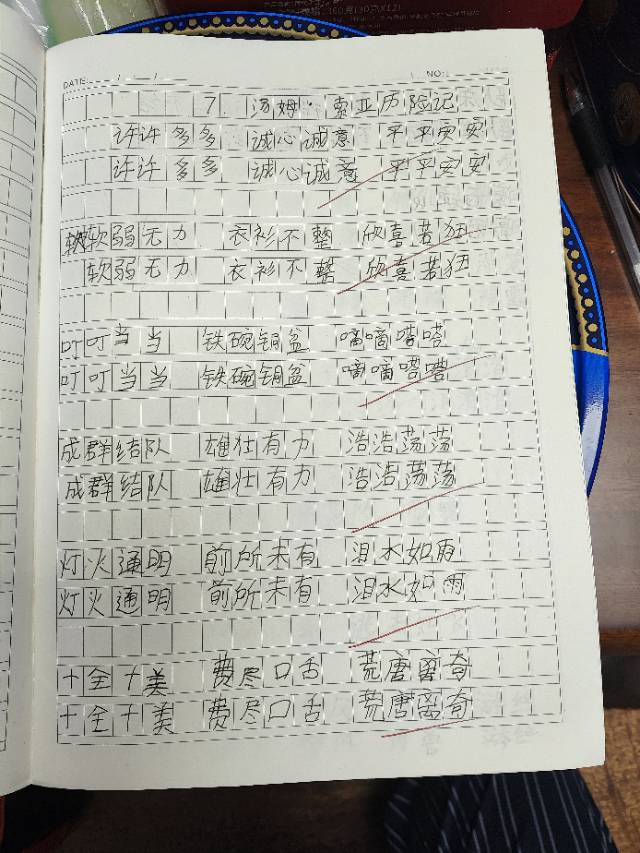 DATE: / / NO:
7. 汤姆·索亚历险记
许许多多 诚心诚意 平平安安
许许多多 诚心诚意 平平安安
软软弱无力 衣衫不整 欣喜若狂
软弱无力 衣衫不整 欣喜若狂
叮叮当当 铁碗铜盆 嘀嘀嗒嗒
叮叮当当 铁碗铜盆 嘀嘀嗒嗒
成群结队 雄壮有力 浩浩荡荡
成群结队 雄壮有力 浩浩荡荡
灯火通明 前所未有 泪水如雨
灯火通明 前所未有 泪水如雨
十全十美 费尽口舌 荒唐离奇
十全十美 费尽口舌 荒唐离奇